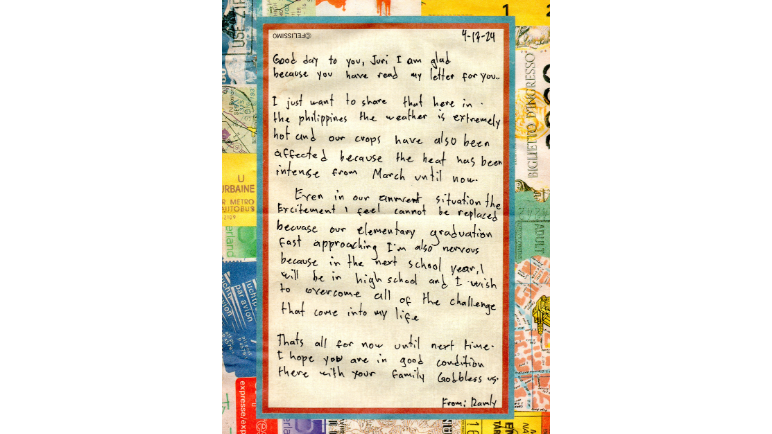 ©FELISSIMO
4-17-24
Good day to you, Juri I am glad
because you have read my letter for you.
I just want to share that here in
the philippines the weather is extremely
hot and our crops have also been
affected because the heat has been
intense from March until now.
Even in our situation the
Excitement I feel cannot be replaced
becuase our elementary graduation
fast approaching I'm also nervous
because in the next school year, I
will be in high school and I wish
to overcome all of the challenge
that come into my life
Thats all for now until next time.
I hope you are in good condition
there with your family Godbless us.
From: Randy
1
2
USE ZIP
BIGLIETTO D'INGRESSO
U
URBAINE
R METRO
AUTOBUS
erland
ADULT
luchtp
par avion
par avion
luchtp
expresse
expresse/exp
erland
1 E